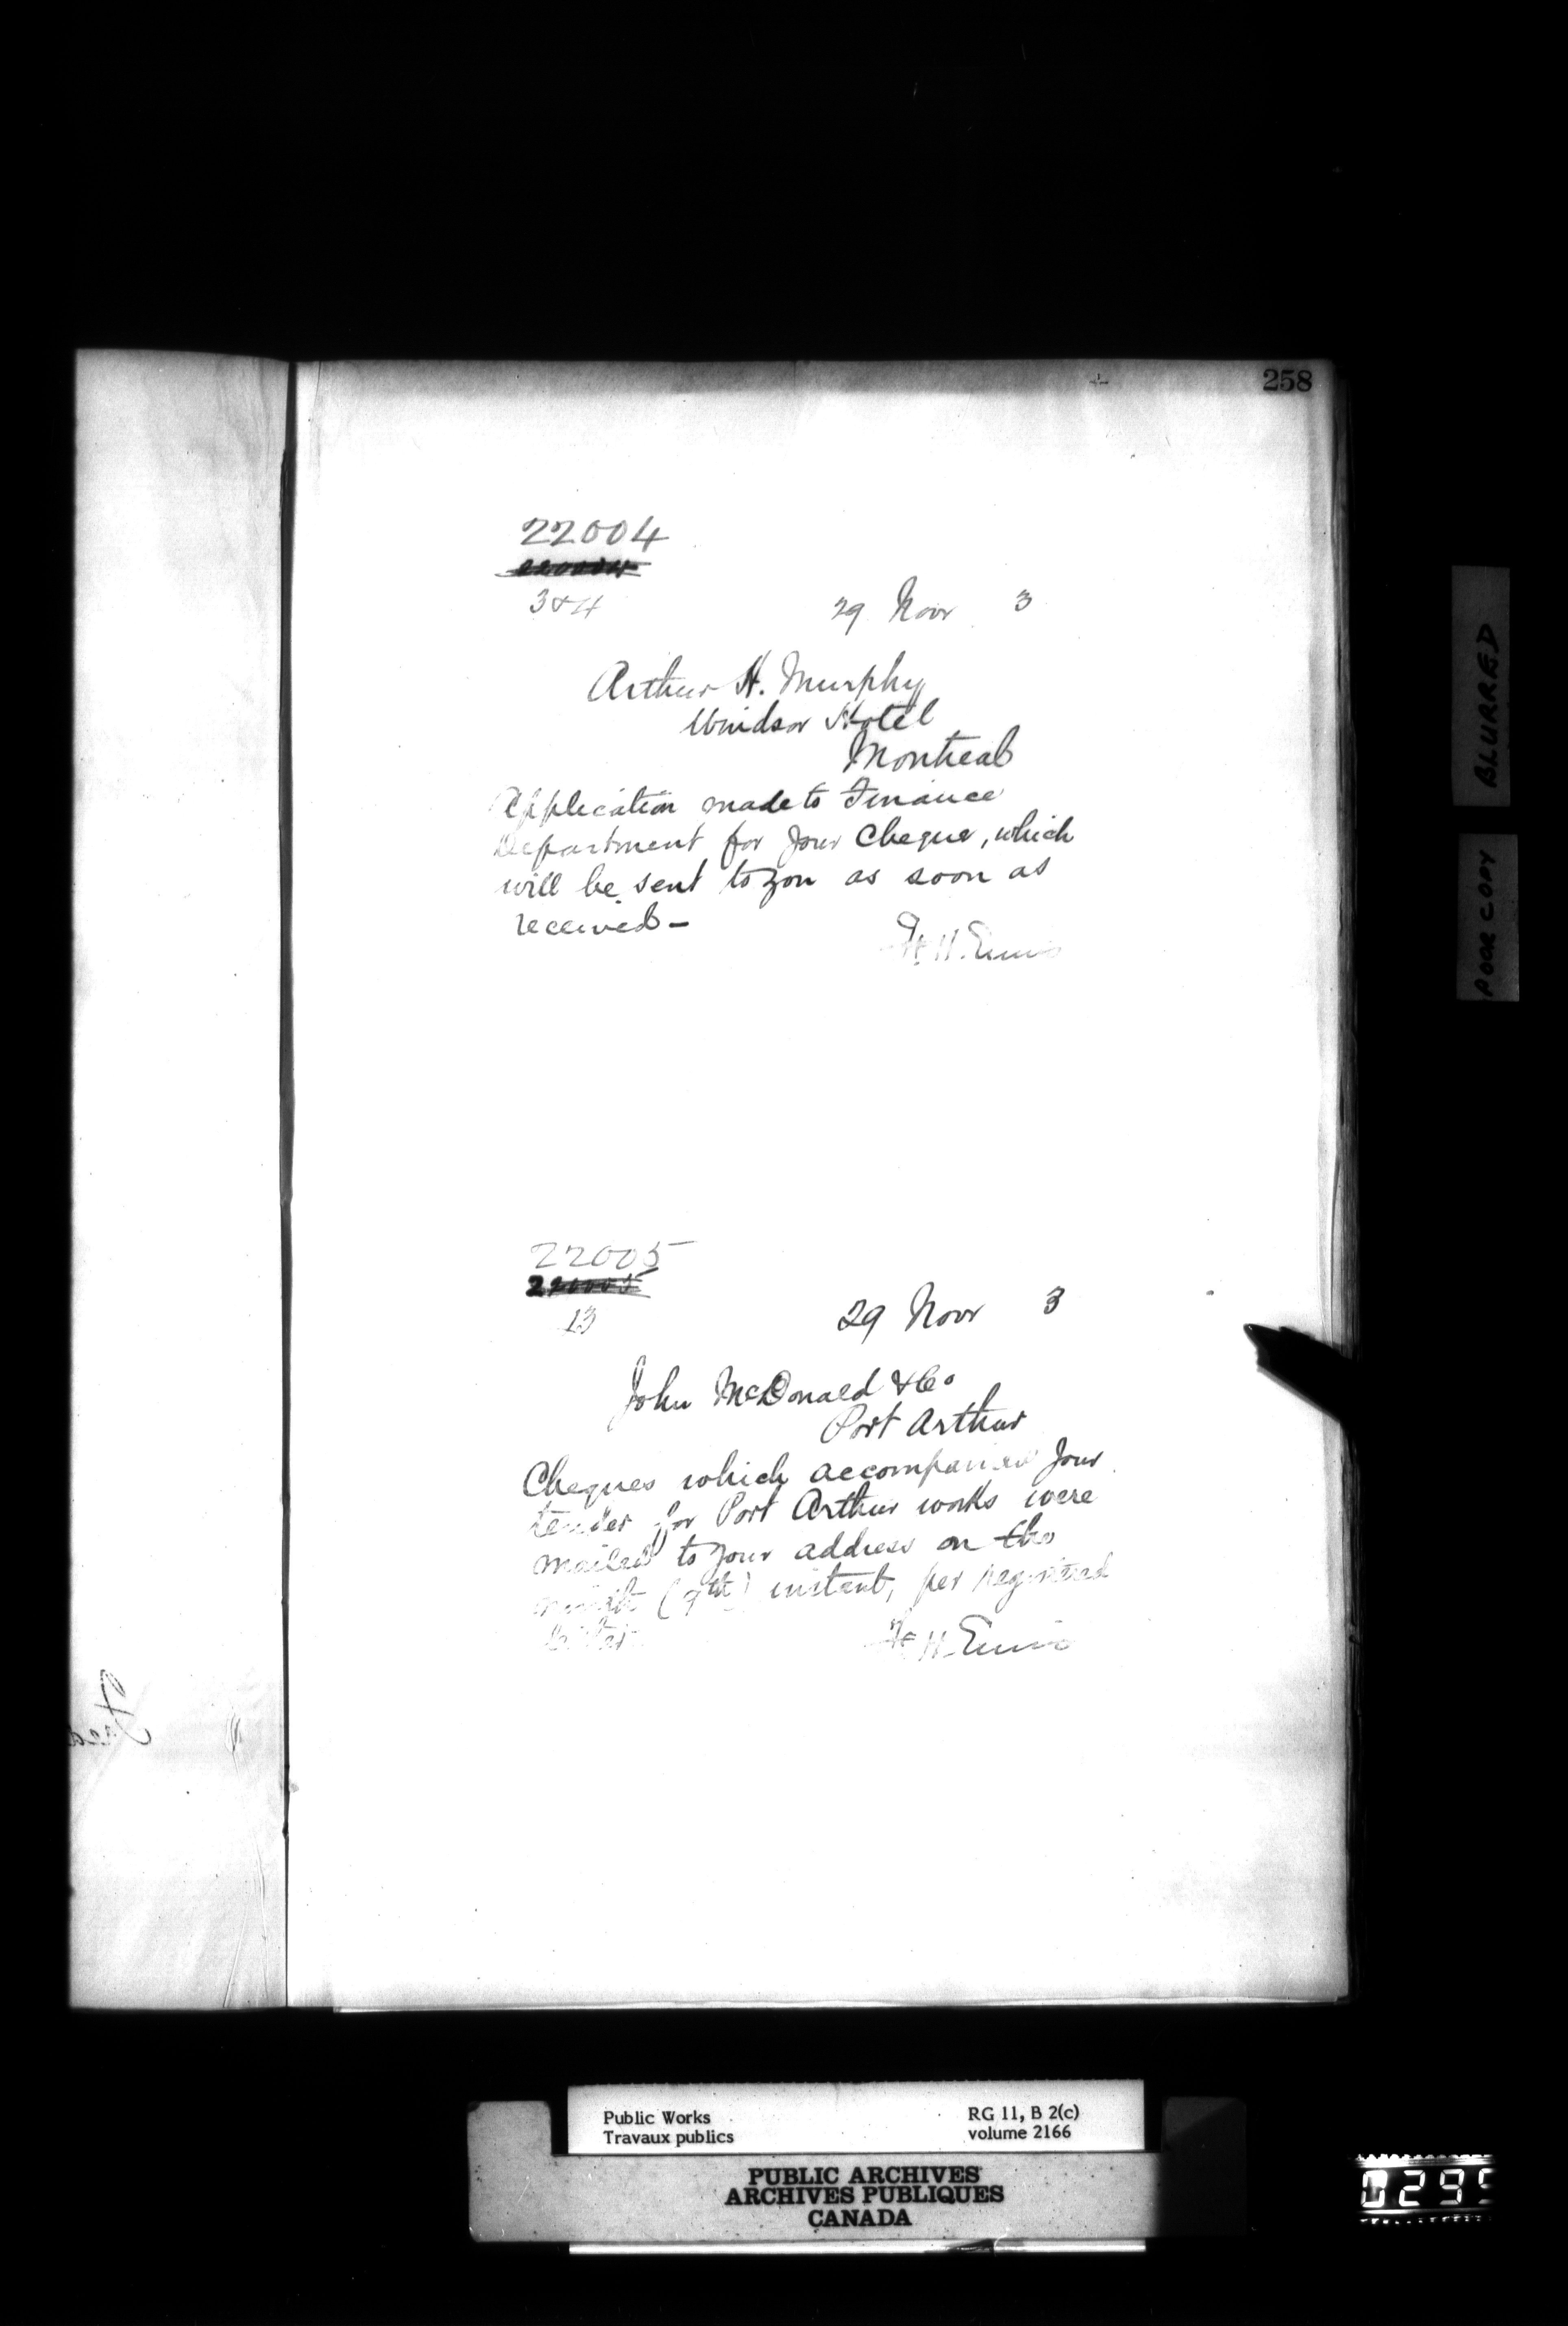 258
22004
3 & 4
29 Novr 3
Arthur H. Murphy
Windsor Hotel
Montreal
Application made to Finance
Department for your Cheque, which
will be sent to you as soon as
received -
F. H. Ennis
22005
220005
13
29 Novr 3
John McDonald & Co
Port Arthur
Cheques which accompanied your
tender for Port Arthur works were
mailed to your address on the
(9th) instant, per registered
letter
F. H. Ennis
Fred
BLURRED
POOR COPY
Public Works
Travaux publics
RG 11, B 2(c)
volume 2166
PUBLIC ARCHIVES
ARCHIVES PUBLIQUES
CANADA
0295